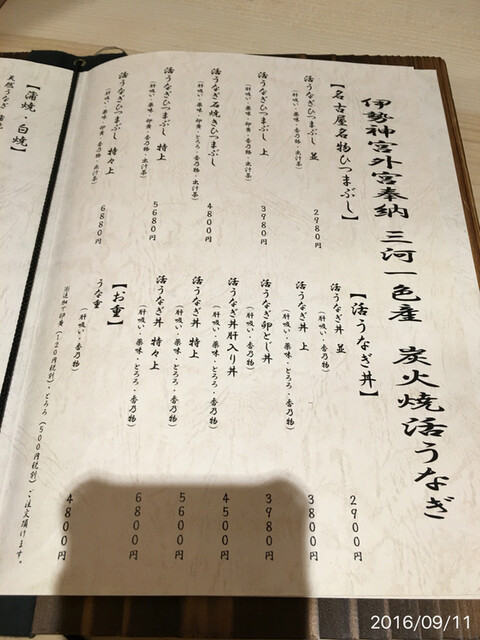 伊勢神宮外宮奉納 三河一色産 炭火焼活うなぎ
【名古屋名物ひつまぶし】
活うなぎひつまぶし 並 2980円
(肝吸い・薬味・香乃物・出汁茶)
活うなぎひつまぶし 上 3980円
(肝吸い・薬味・香乃物・出汁茶)
活うなぎ石焼きひつまぶし 4800円
(肝吸い・薬味・卵黄・とろろ・香乃物・出汁茶)
活うなぎひつまぶし 特上 5680円
(肝吸い・薬味・卵黄・香乃物・出汁茶)
活うなぎひつまぶし 特々上 6880円
(肝吸い・薬味・卵黄・とろろ・香乃物・出汁茶)
【活うなぎ丼】
活うなぎ丼 並 2900円
(肝吸い・香乃物)
活うなぎ丼 上 3800円
(肝吸い・薬味・とろろ・香乃物)
活うなぎ卵とじ丼 3980円
(肝吸い・香乃物)
活うなぎ丼肝入り丼 4500円
(肝吸い・薬味・とろろ・香乃物)
活うなぎ丼 特上 5600円
(肝吸い・薬味・とろろ・香乃物)
活うなぎ丼 特々上 6800円
(肝吸い・薬味・とろろ・香乃物)
【お重】
うな重 4800円
(肝吸い・香乃物)
別途加で卵黄(120円税別)、とろろ(500円税別)ご注文頂けます。
【蒲焼・白焼】
天然うなぎ 蒲焼
2016/09/11